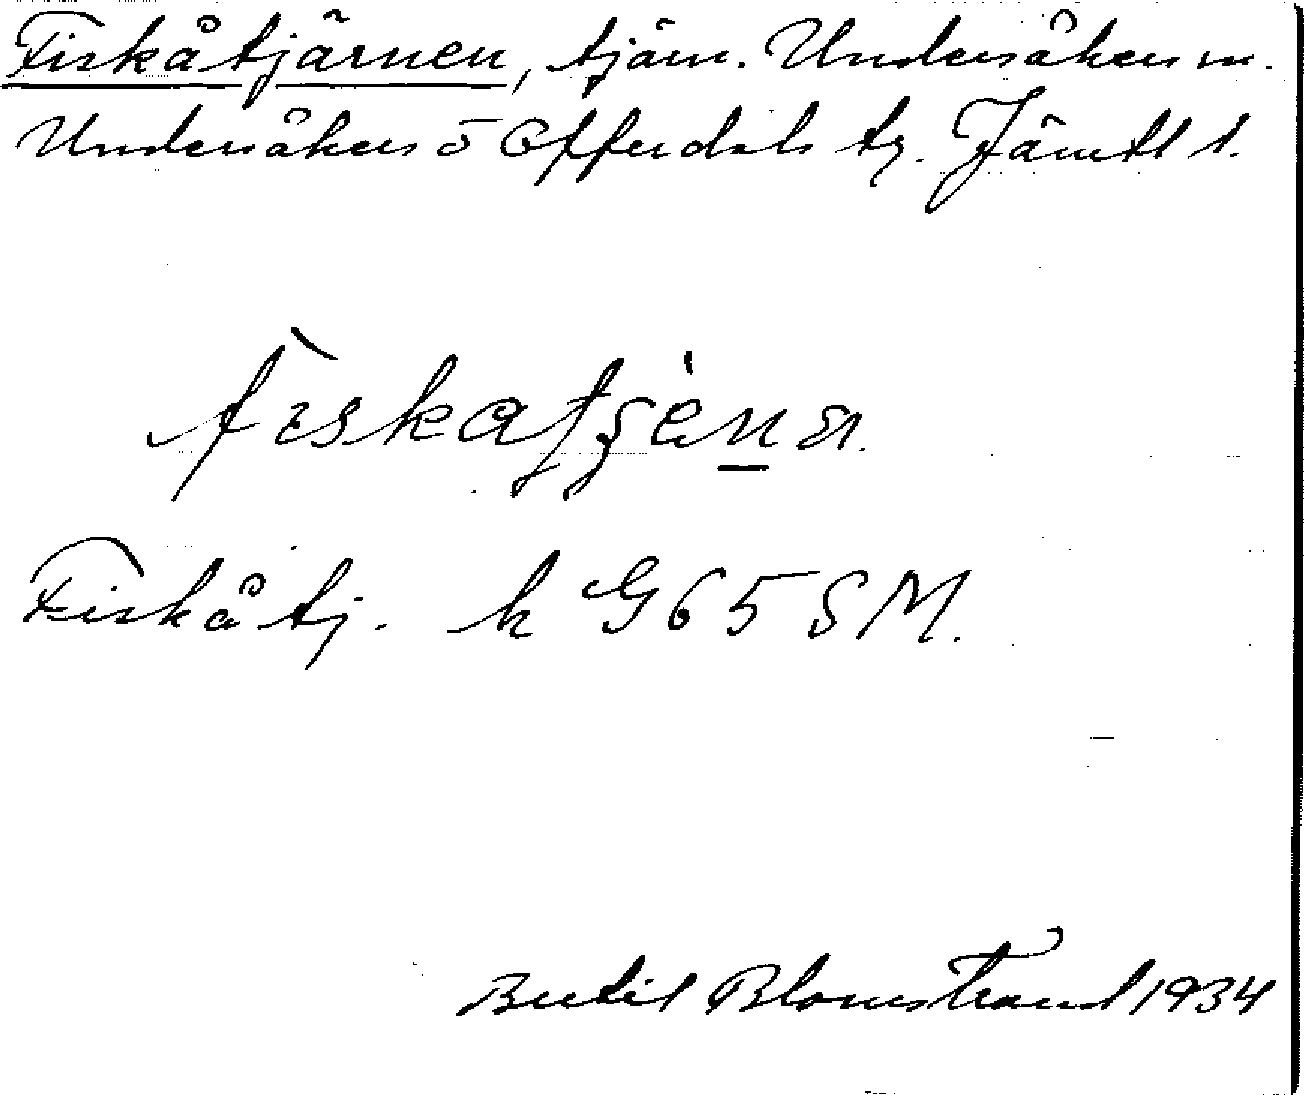 Fiskåtjärnen, tjärn. Undersåkers sn.
Undersåkers o Offerdals tg. Jämtl l.
Fiskåtj. k G65SM.
Bertil Blomstrand 1934